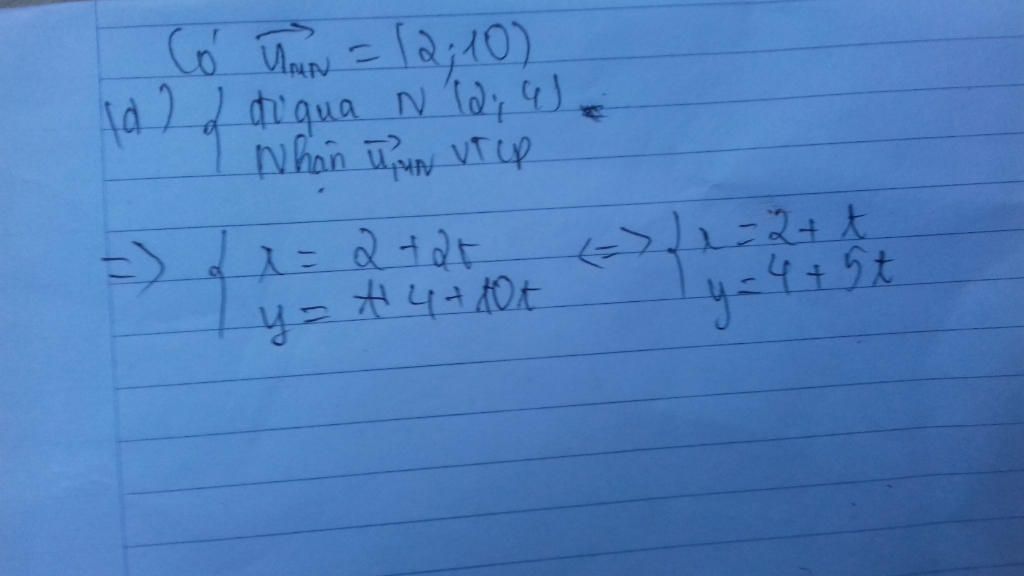 Có u⃗MN = (2;10)
(d) { đi qua N (2; 4)
Nhận u⃗MN VTCP
=> { x = 2 + 2t <=> { x = 2 + t
y = 4 + 10t y = 4 + 5t